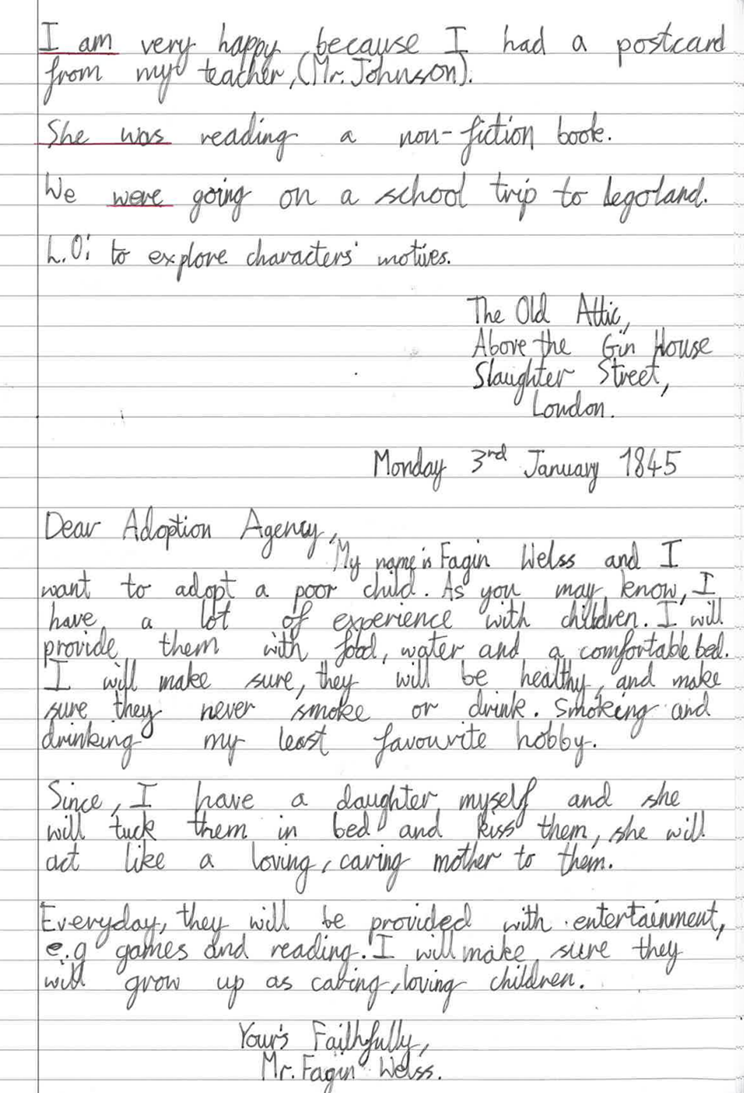 I am very happy because I had a postcard
from my teacher, (Mr. Johnson).
She was reading a non-fiction book.
We were going on a school trip to legoland.
L.O: to explore characters' motives.
The Old Attic,
Above the Gin House
Slaughter Street,
London.
Monday 3rd January 1845
Dear Adoption Agency,
My name is Fagin Welss and I
want to adopt a poor child. As you may know, I
have a lot of experience with children. I will
provide them with food, water and a comfortable bed.
I will make sure, they will be healthy, and make
sure they never smoke or drink. Smoking and
drinking my least favourite hobby.
Since, I have a daughter myself and she
will tuck them in bed and kiss them, she will
act like a loving, caring mother to them.
Everyday, they will be provided with entertainment,
e.g games and reading. I will make sure they
will grow up as caring, loving children.
Your's Faithfully,
Mr. Fagin Welss.